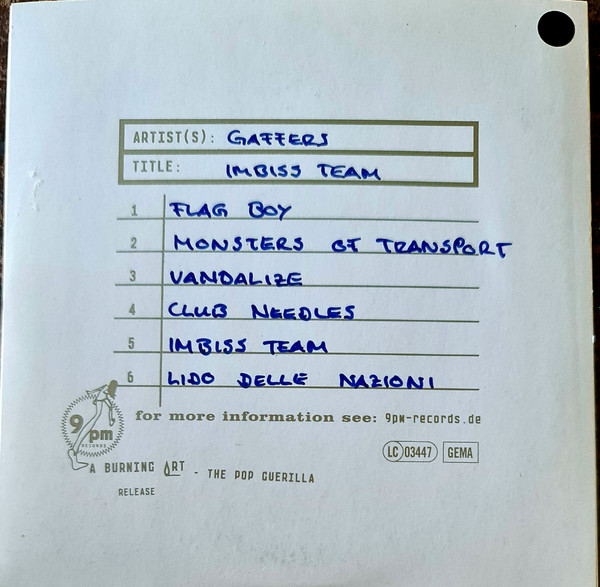 ARTIST(S): GAFFERS
TITLE: IMBISS TEAM
1 FLAG BOY
2 MONSTERS OF TRANSPORT
3 VANDALIZE
4 CLUB NEEDLES
5 IMBISS TEAM
6 LIDO DELLE NAZIONI
for more information see: 9pm-records.de
9 pm
RECORDS
LC 03447 GEMA
A BURNING ART - THE POP GUERILLA
RELEASE